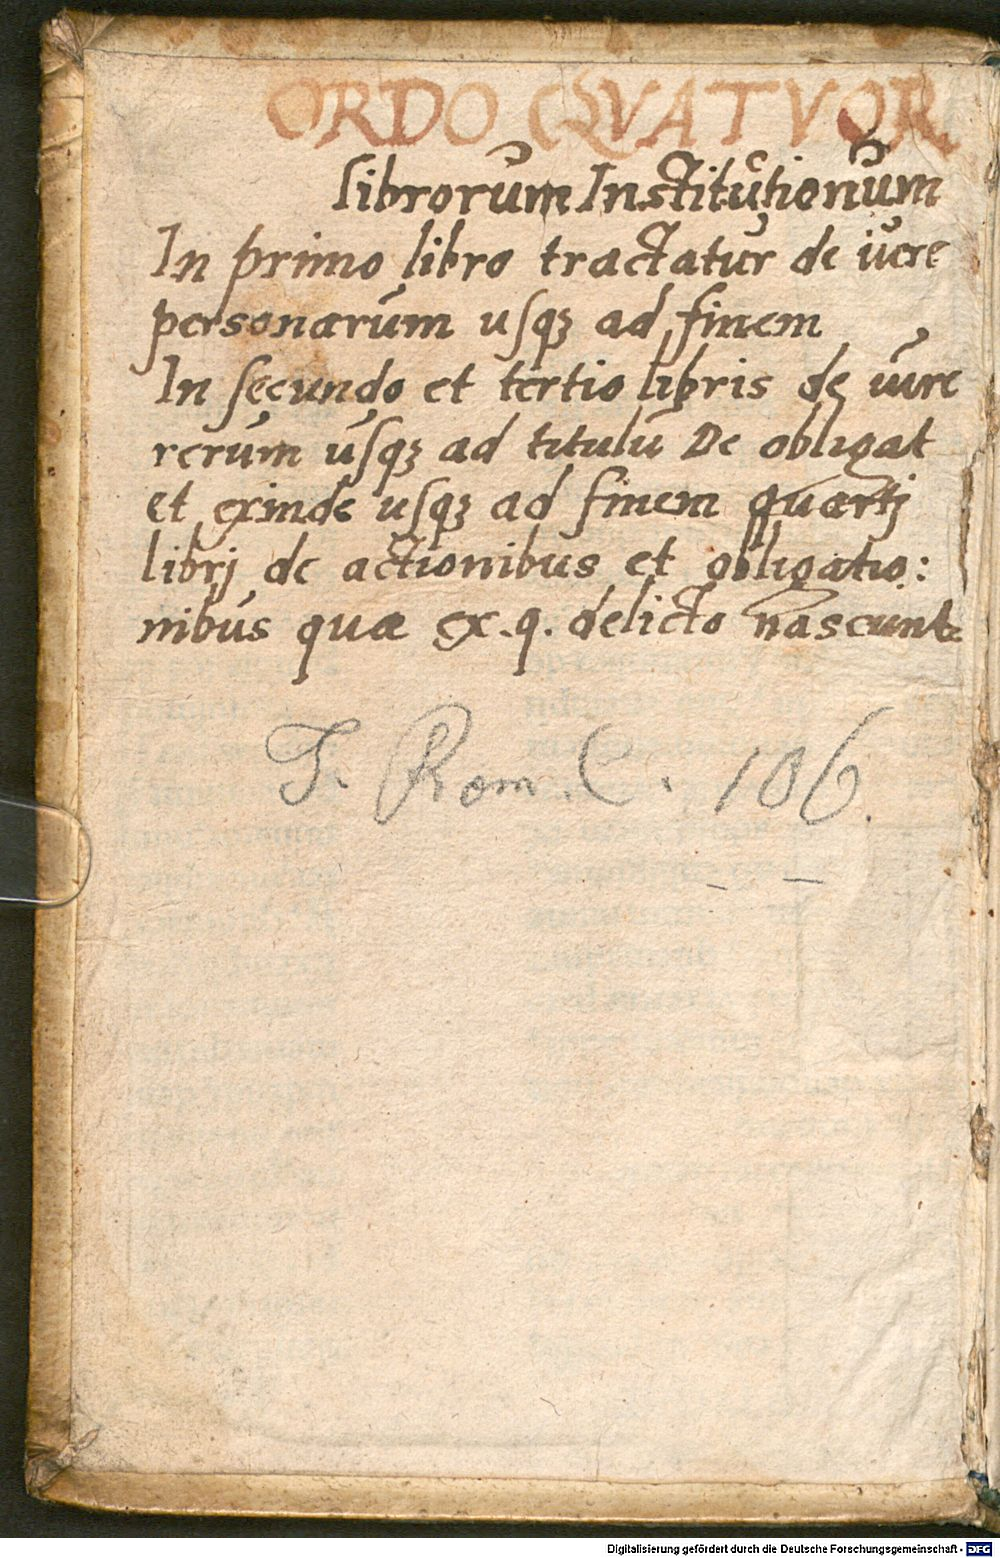 ORDO QVATVOR
librorum Institutionum
In primo libro tractatur de iure
personarum usqꝫ ad finem
In secundo et tertio libris de iure
rerum usqꝫ ad titulū De obligat
et exinde usqꝫ ad finem quartj
librj de actionibus et obligatio:
nibus quæ ex.q. delicto nascunt
J. Rom. C. 106.
Digitalisierung gefördert durch die Deutsche Forschungsgemeinschaft - DFG